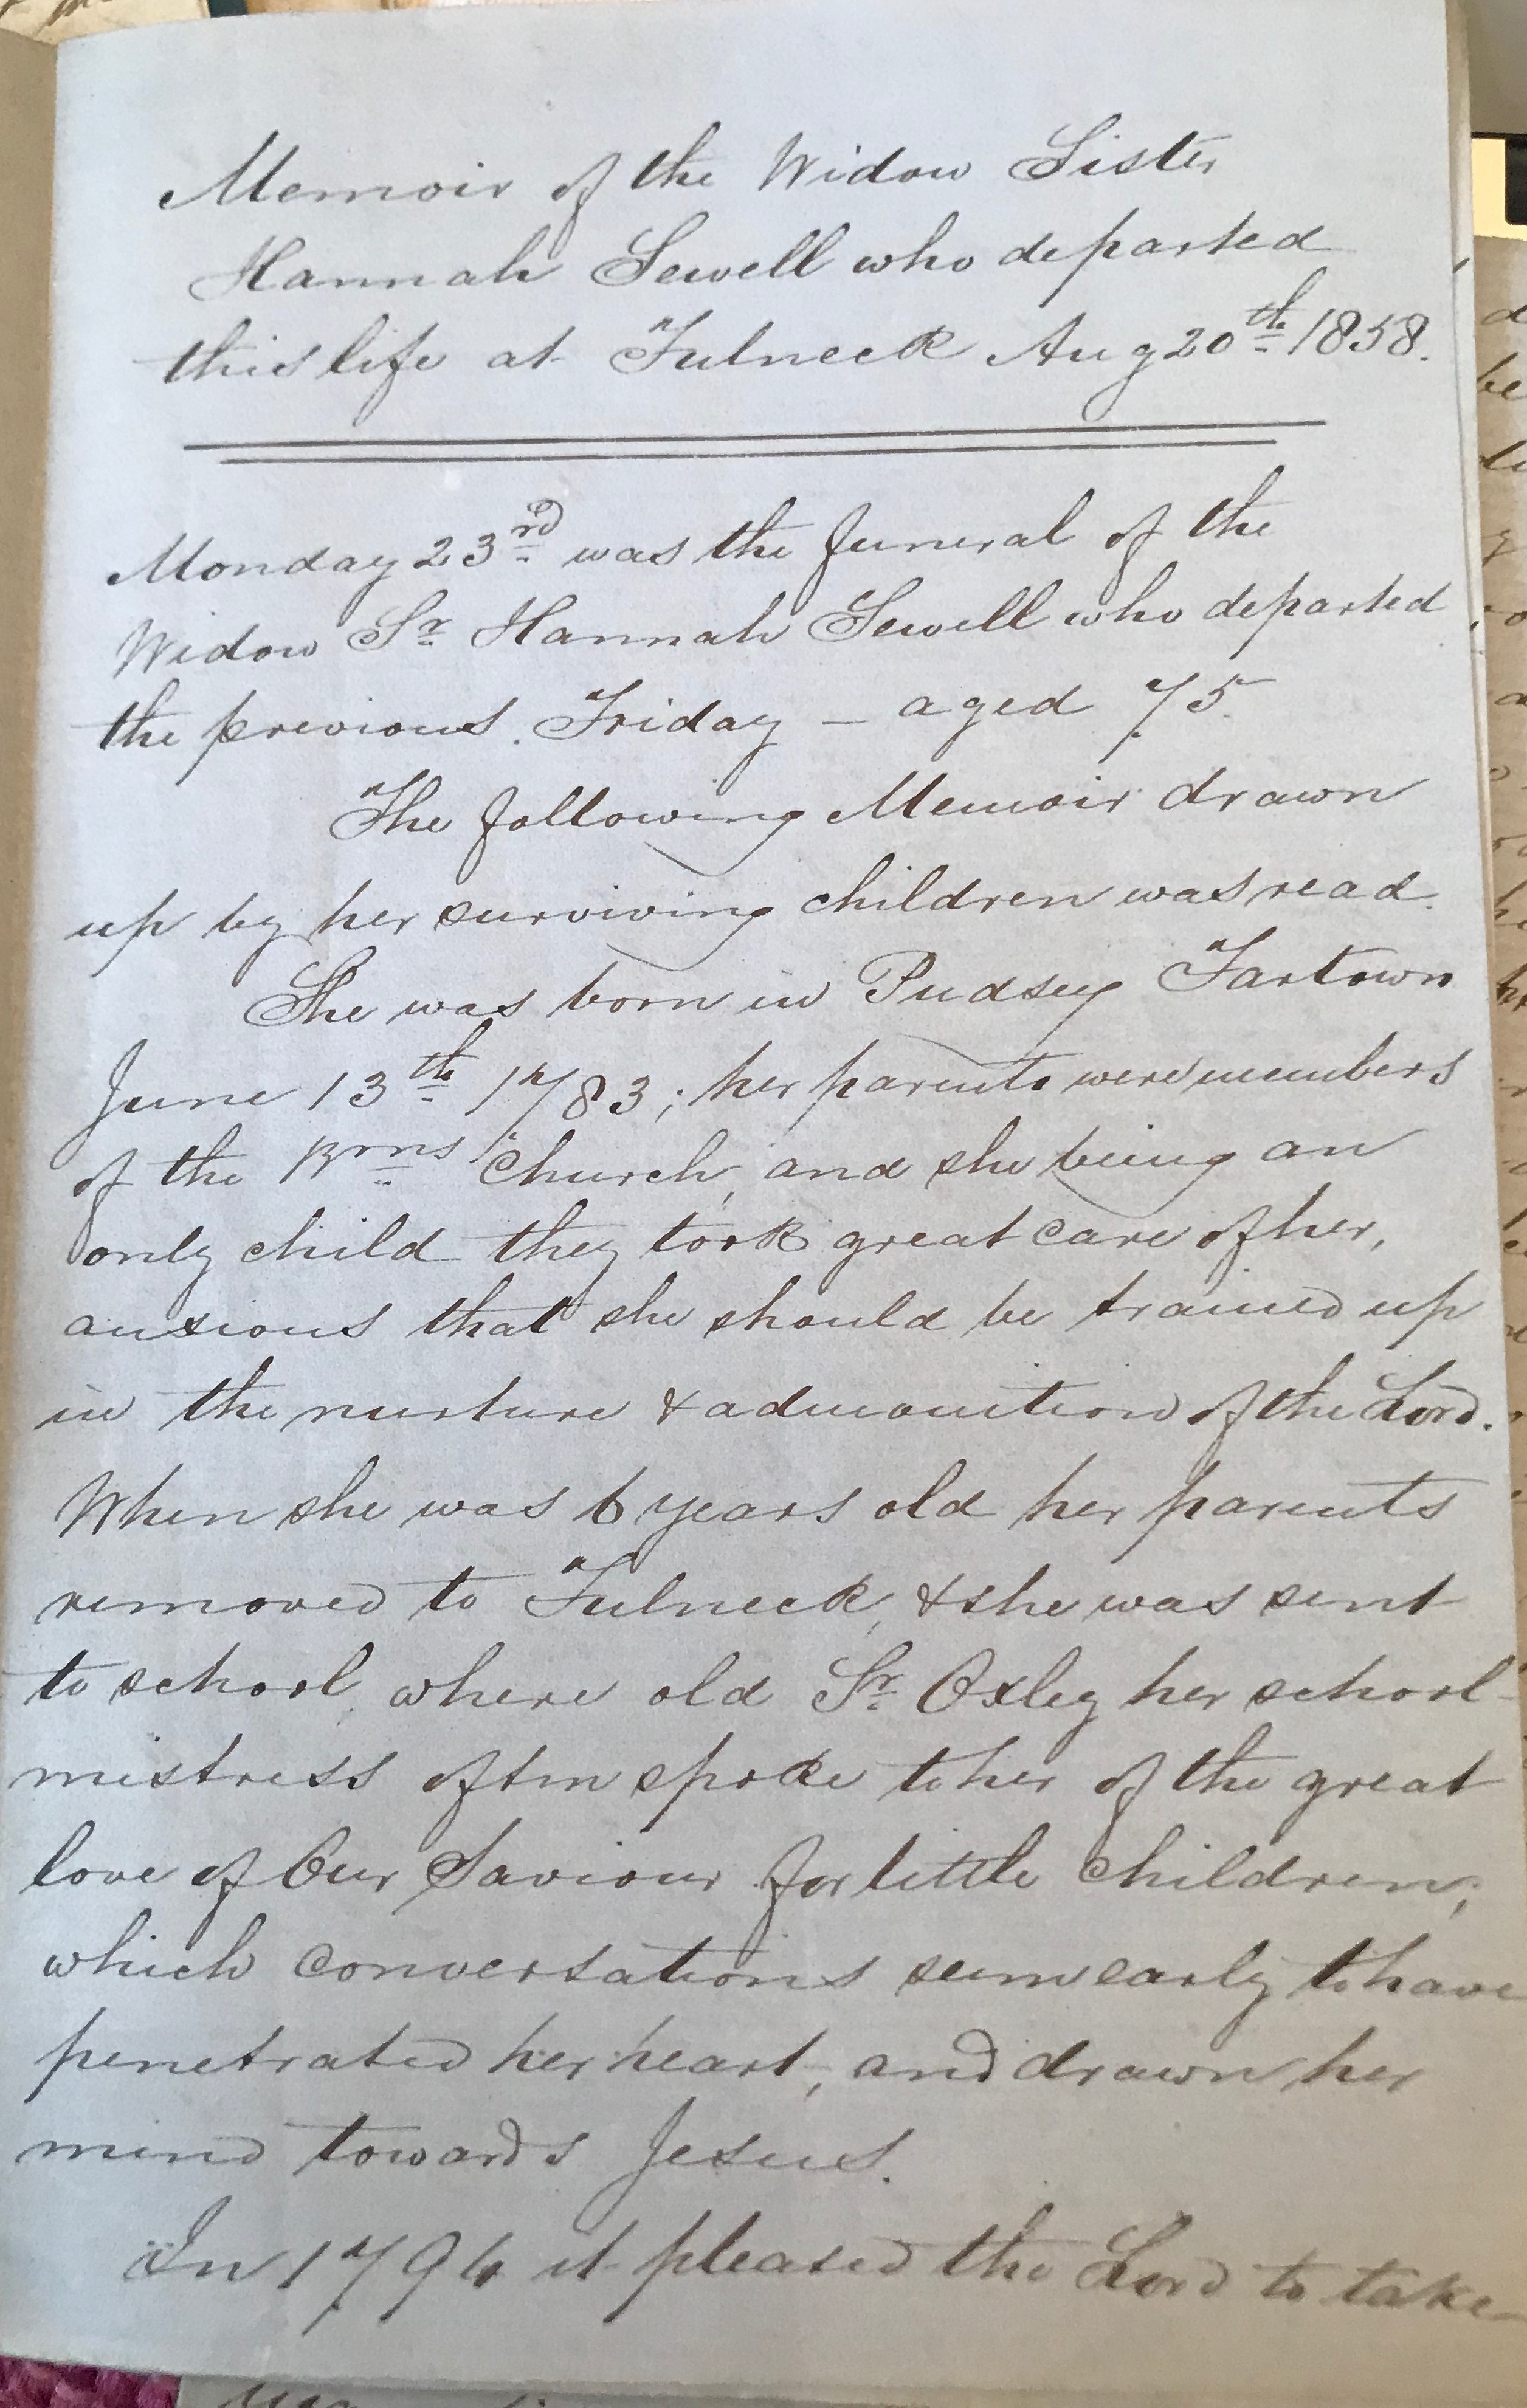 Memoir of the Widow Sister
Hannah Sewell who departed
this life at Fulneck Aug 20th 1858.
Monday 23rd was the funeral of the
Widow Sr Hannah Sewell who departed
the previous Friday – aged 75.
The following Memoir drawn
up by her surviving children was read.
She was born in Pudsey Fartown
June 13th 1783; her parents were members
of the Brns Church, and she being an
only child they took great care of her,
anxious that she should be trained up
in the nurture & admonition of the Lord.
When she was 6 years old her parents
removed to Fulneck, & she was sent
to school, where old Sr Oxley her school
mistress often spoke to her of the great
love of Our Saviour for little children;
which conversations seem early to have
penetrated her heart, and drawn her
mind towards Jesus.
In 1794 it pleased the Lord to take